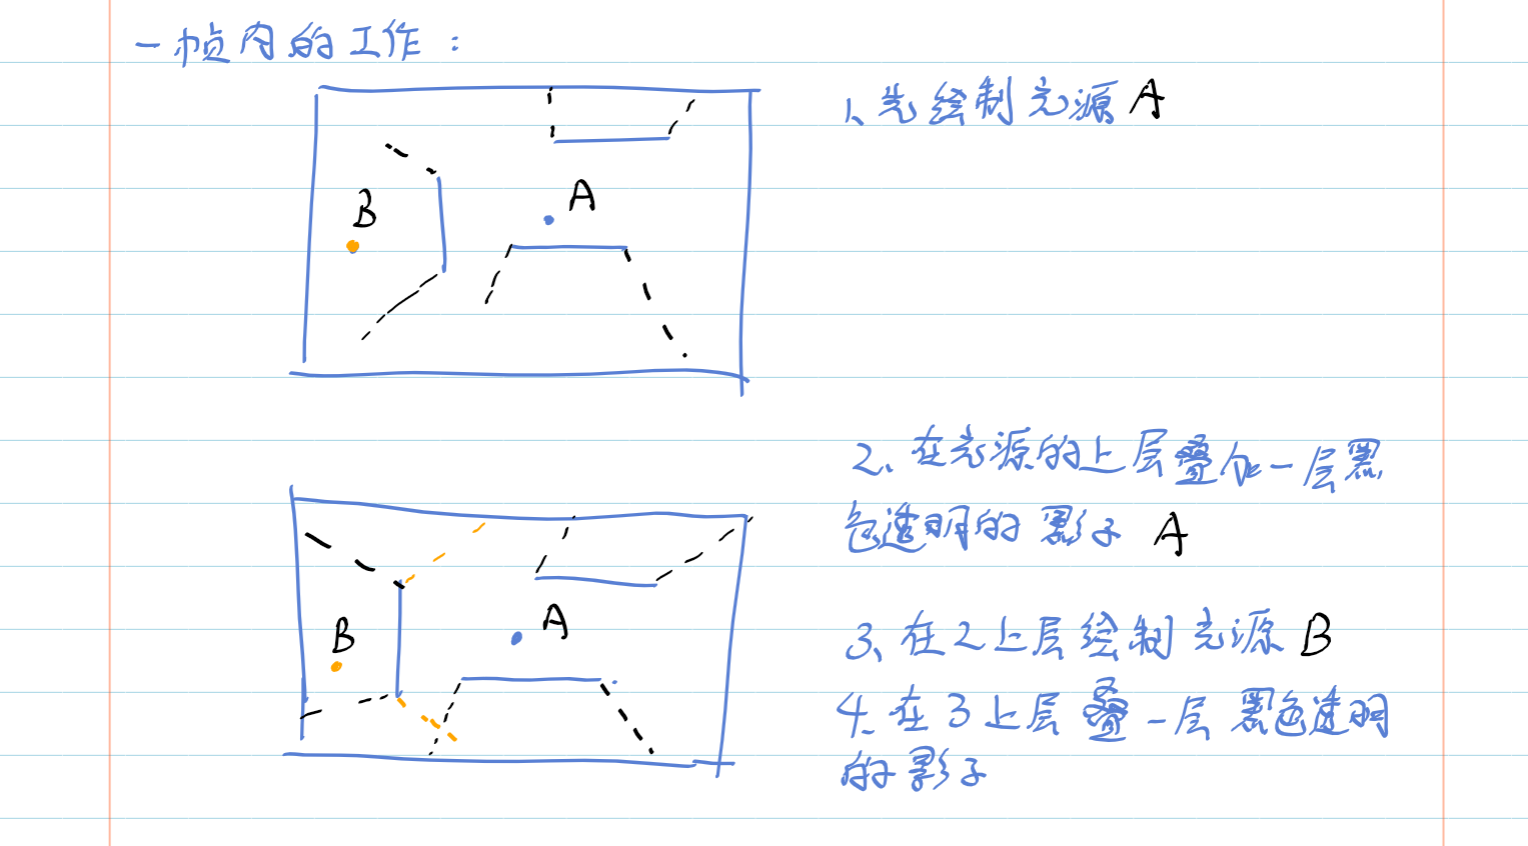 一帧内的工作：
1、先绘制光源 A
B
A
2、在光源的上层叠加一层黑
色透明的影子 A
B
A
3、在2上层绘制光源 B
4、在3上层叠一层黑色透明
的影子